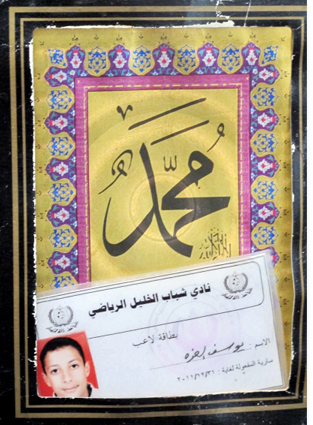 محمد
نادي شباب الخليل الرياضي
بطاقة لاعب
الاسم: يوسف
سارية المفعول لغاية: ٢٠١١/١٢/٣١